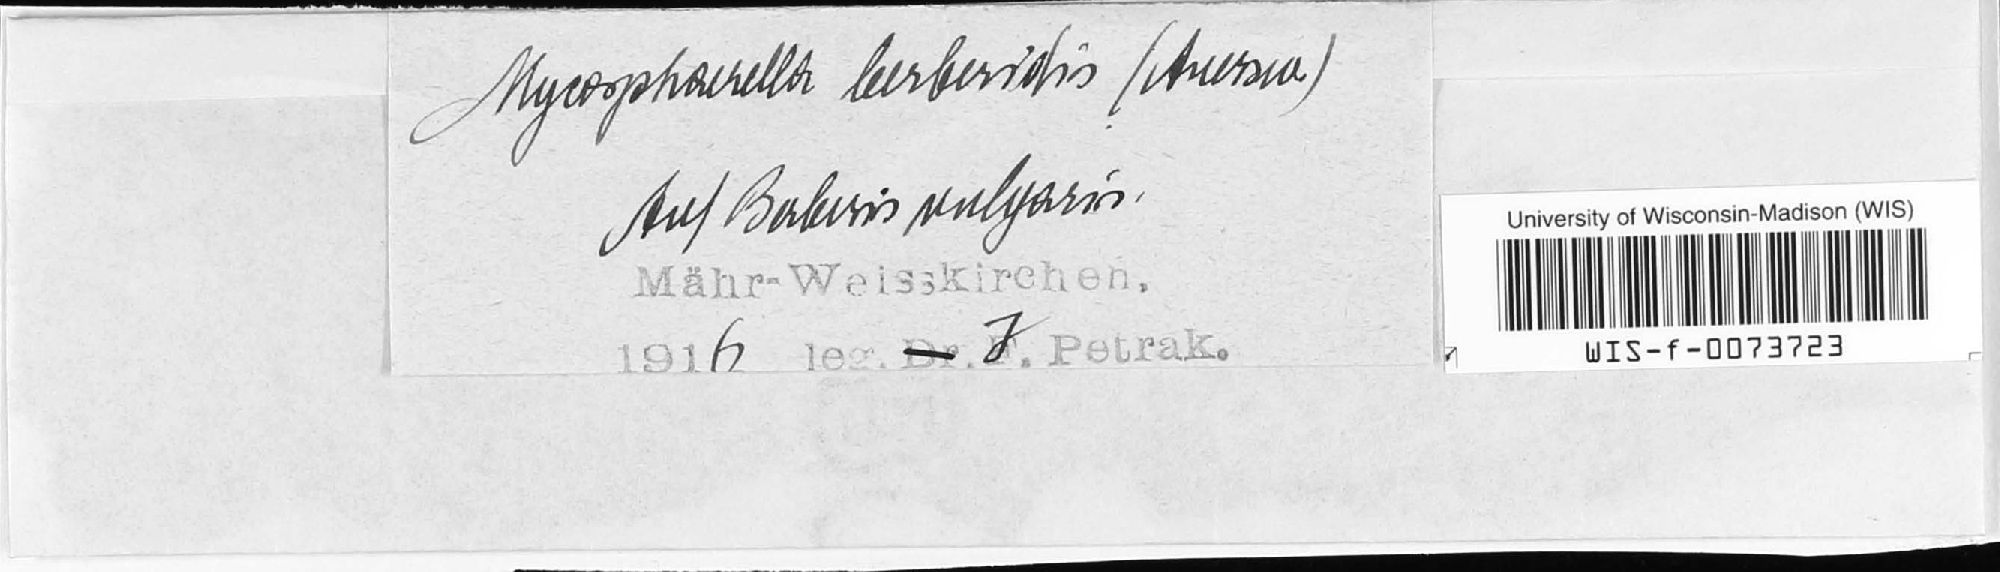 Mycosphaerella berberidis (Auersw)
Auf Berberis vulgaris.
Mähr-Weisskirchen,
1916 leg. Dr. F. Petrak.
University of Wisconsin-Madison (WIS)
WIS-f-0073723